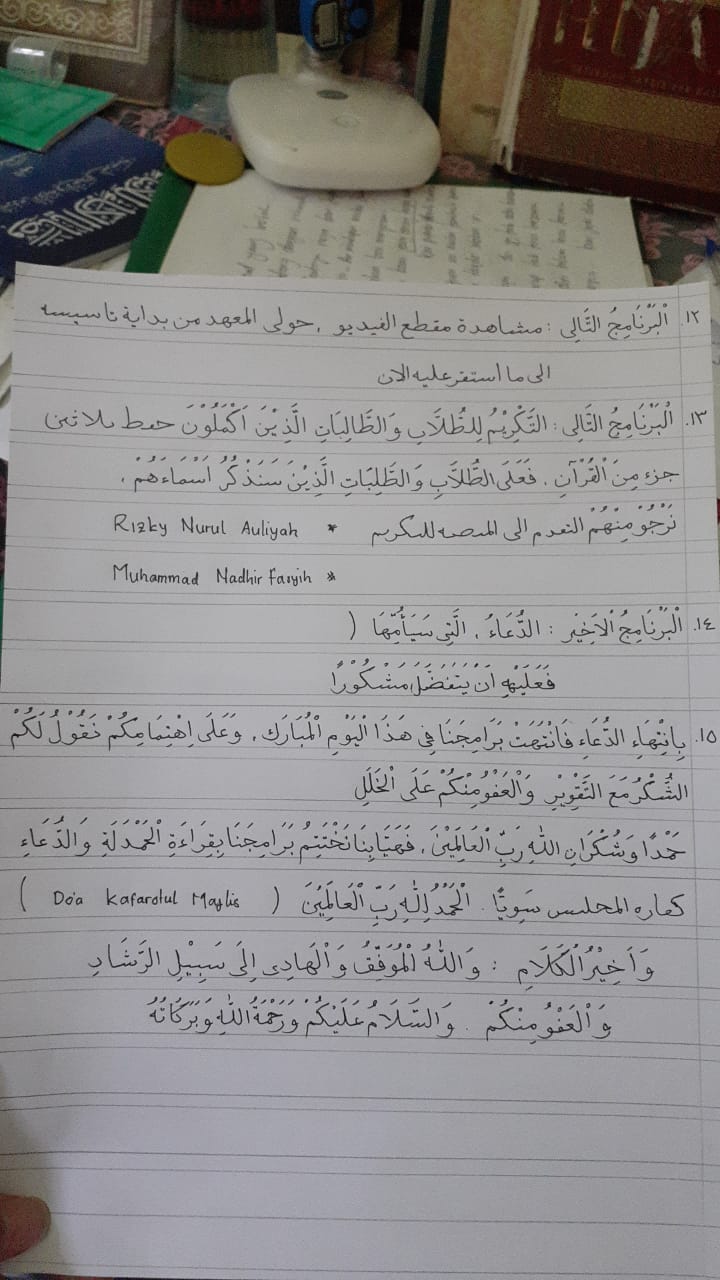 ١٢. اَلْبَرْنَامِجُ التَّالِى : مشاهدة مقطع الفيديو ، حولى المعهد من بداية تاسيسه
الى ما استقر عليه الان
١٣. اَلْبَرْنَامِجُ التَّالِى : التَّكْرِيْمُ لِلطُّلَّابِ وَالطَّالِبَاتِ الَّذِيْنَ اَكْمَلُوْنَ حفظ ثلاثين
جزء مِنَ الْقُرْآنِ . فَعَلَى الطُّلَّابِ وَالطَّلِبَاتِ الَّذِيْنَ سَنَذْكُرُ اَسْمَاءَهُمْ ،
نَرْجُوْ مِنْهُمُ التقدم الى المنصه للتكريم * Rizky Nurul Auliyah
* Muhammad Nadhir Fasyih
١٤. اَلْبَرْنَامِجُ الْاَخِيْرِ : الدُّعَاءُ ، الَّتِى سَيَأُمُّهَا (
فَعَلَيْهِ اَنْ يَتَفَضَّلَ مَشْكُوْرًا
١٥. بِانْتِهَاءِ الدُّعَاءِ فَانْتَهَتْ بَرَامِجُنَا فِى هَذَا الْيَوْمِ الْمُبَارَك ، وَعَلَى اِهْتِمَامِكُمْ نَقُوْلُ لَكُمْ
الشُّكْرُ مَعَ التَّقْوِيْرِ وَالْعَفْوُ مِنْكُمْ عَلَى الْخَلَلِ
حَمْدًا وَشُكْرَانِ اللهِ رَبِّ الْعَالَمِيْنَ ، فَهَيَّا بِنَا نَخْتَتِمُ بَرَامِجَنَا بِقِرَاءَةِ الْحَمْدَلَةِ وَالدُّعَاءِ
كفاره المجليس سَوِيًّا . اَلْحَمْدُ لِلهِ رَبِّ الْعَالَمِيْنَ ( Do'a Kafarotul Majlis )
وَاَخِيْرُ الْكَلَامِ : وَاللهُ الْمُوَفِّقُ وَالْهَادِى اِلَى سَبِيْلِ الرَّشَادِ
وَالْعَفْوُ مِنْكُمْ . وَالسَّلَامُ عَلَيْكُمْ وَرَحْمَةُ اللهِ وَبَرَكَاتُهُ